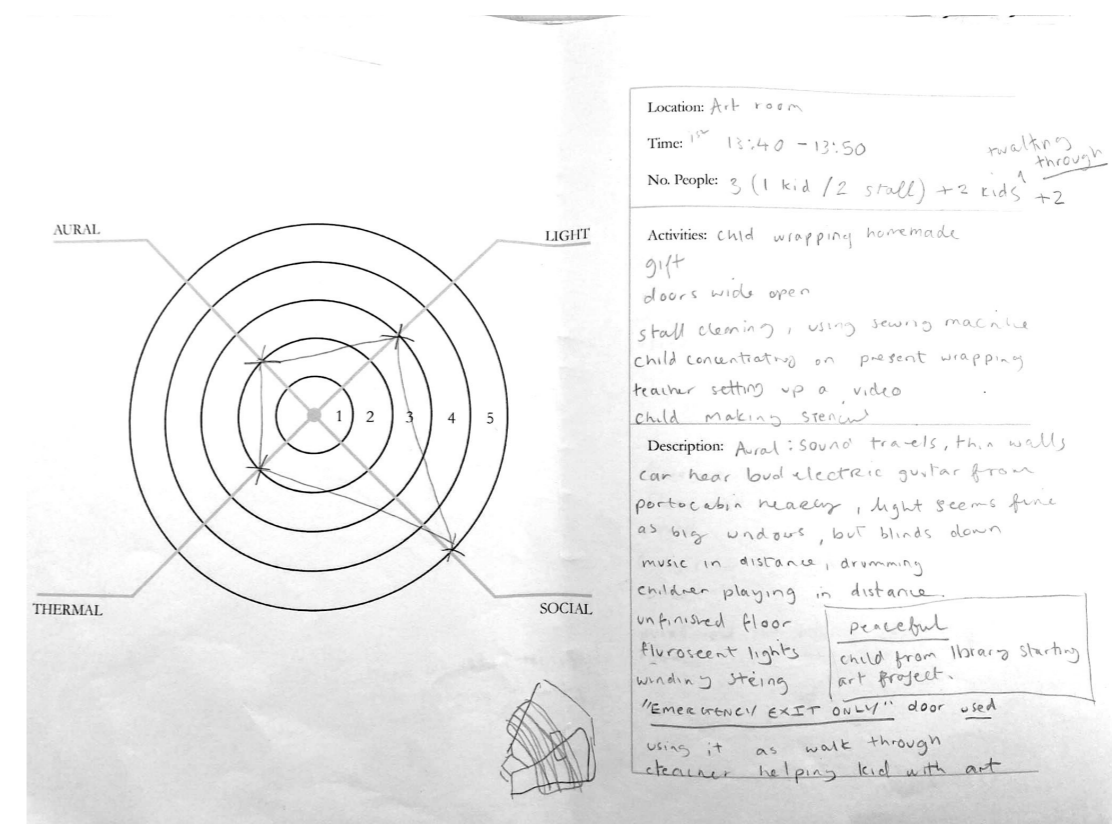 AURAL
LIGHT
1 2 3 4 5
THERMAL
SOCIAL
Location: Art room
Time: 1st 13:40 - 13:50
walking
through
No. People: 3 (1 kid / 2 staff) + 2 kids +2
Activities: Child wrapping homemade
gift
doors wide open
staff cleaning, using sewing machine
child concentrating on present wrapping
teacher setting up a video
child making stencil
Description: Aural: sound travels, thin walls
can hear loud electric guitar from
portocabin nearby, light seems fine
as big windows, but blinds down
music in distance, drumming
children playing in distance.
unfinished floor
fluroscent lights
winding string
peaceful
child from library starting
art project.
"EMERGENCY EXIT ONLY" door used
using it as walk through
teacher helping kid with art